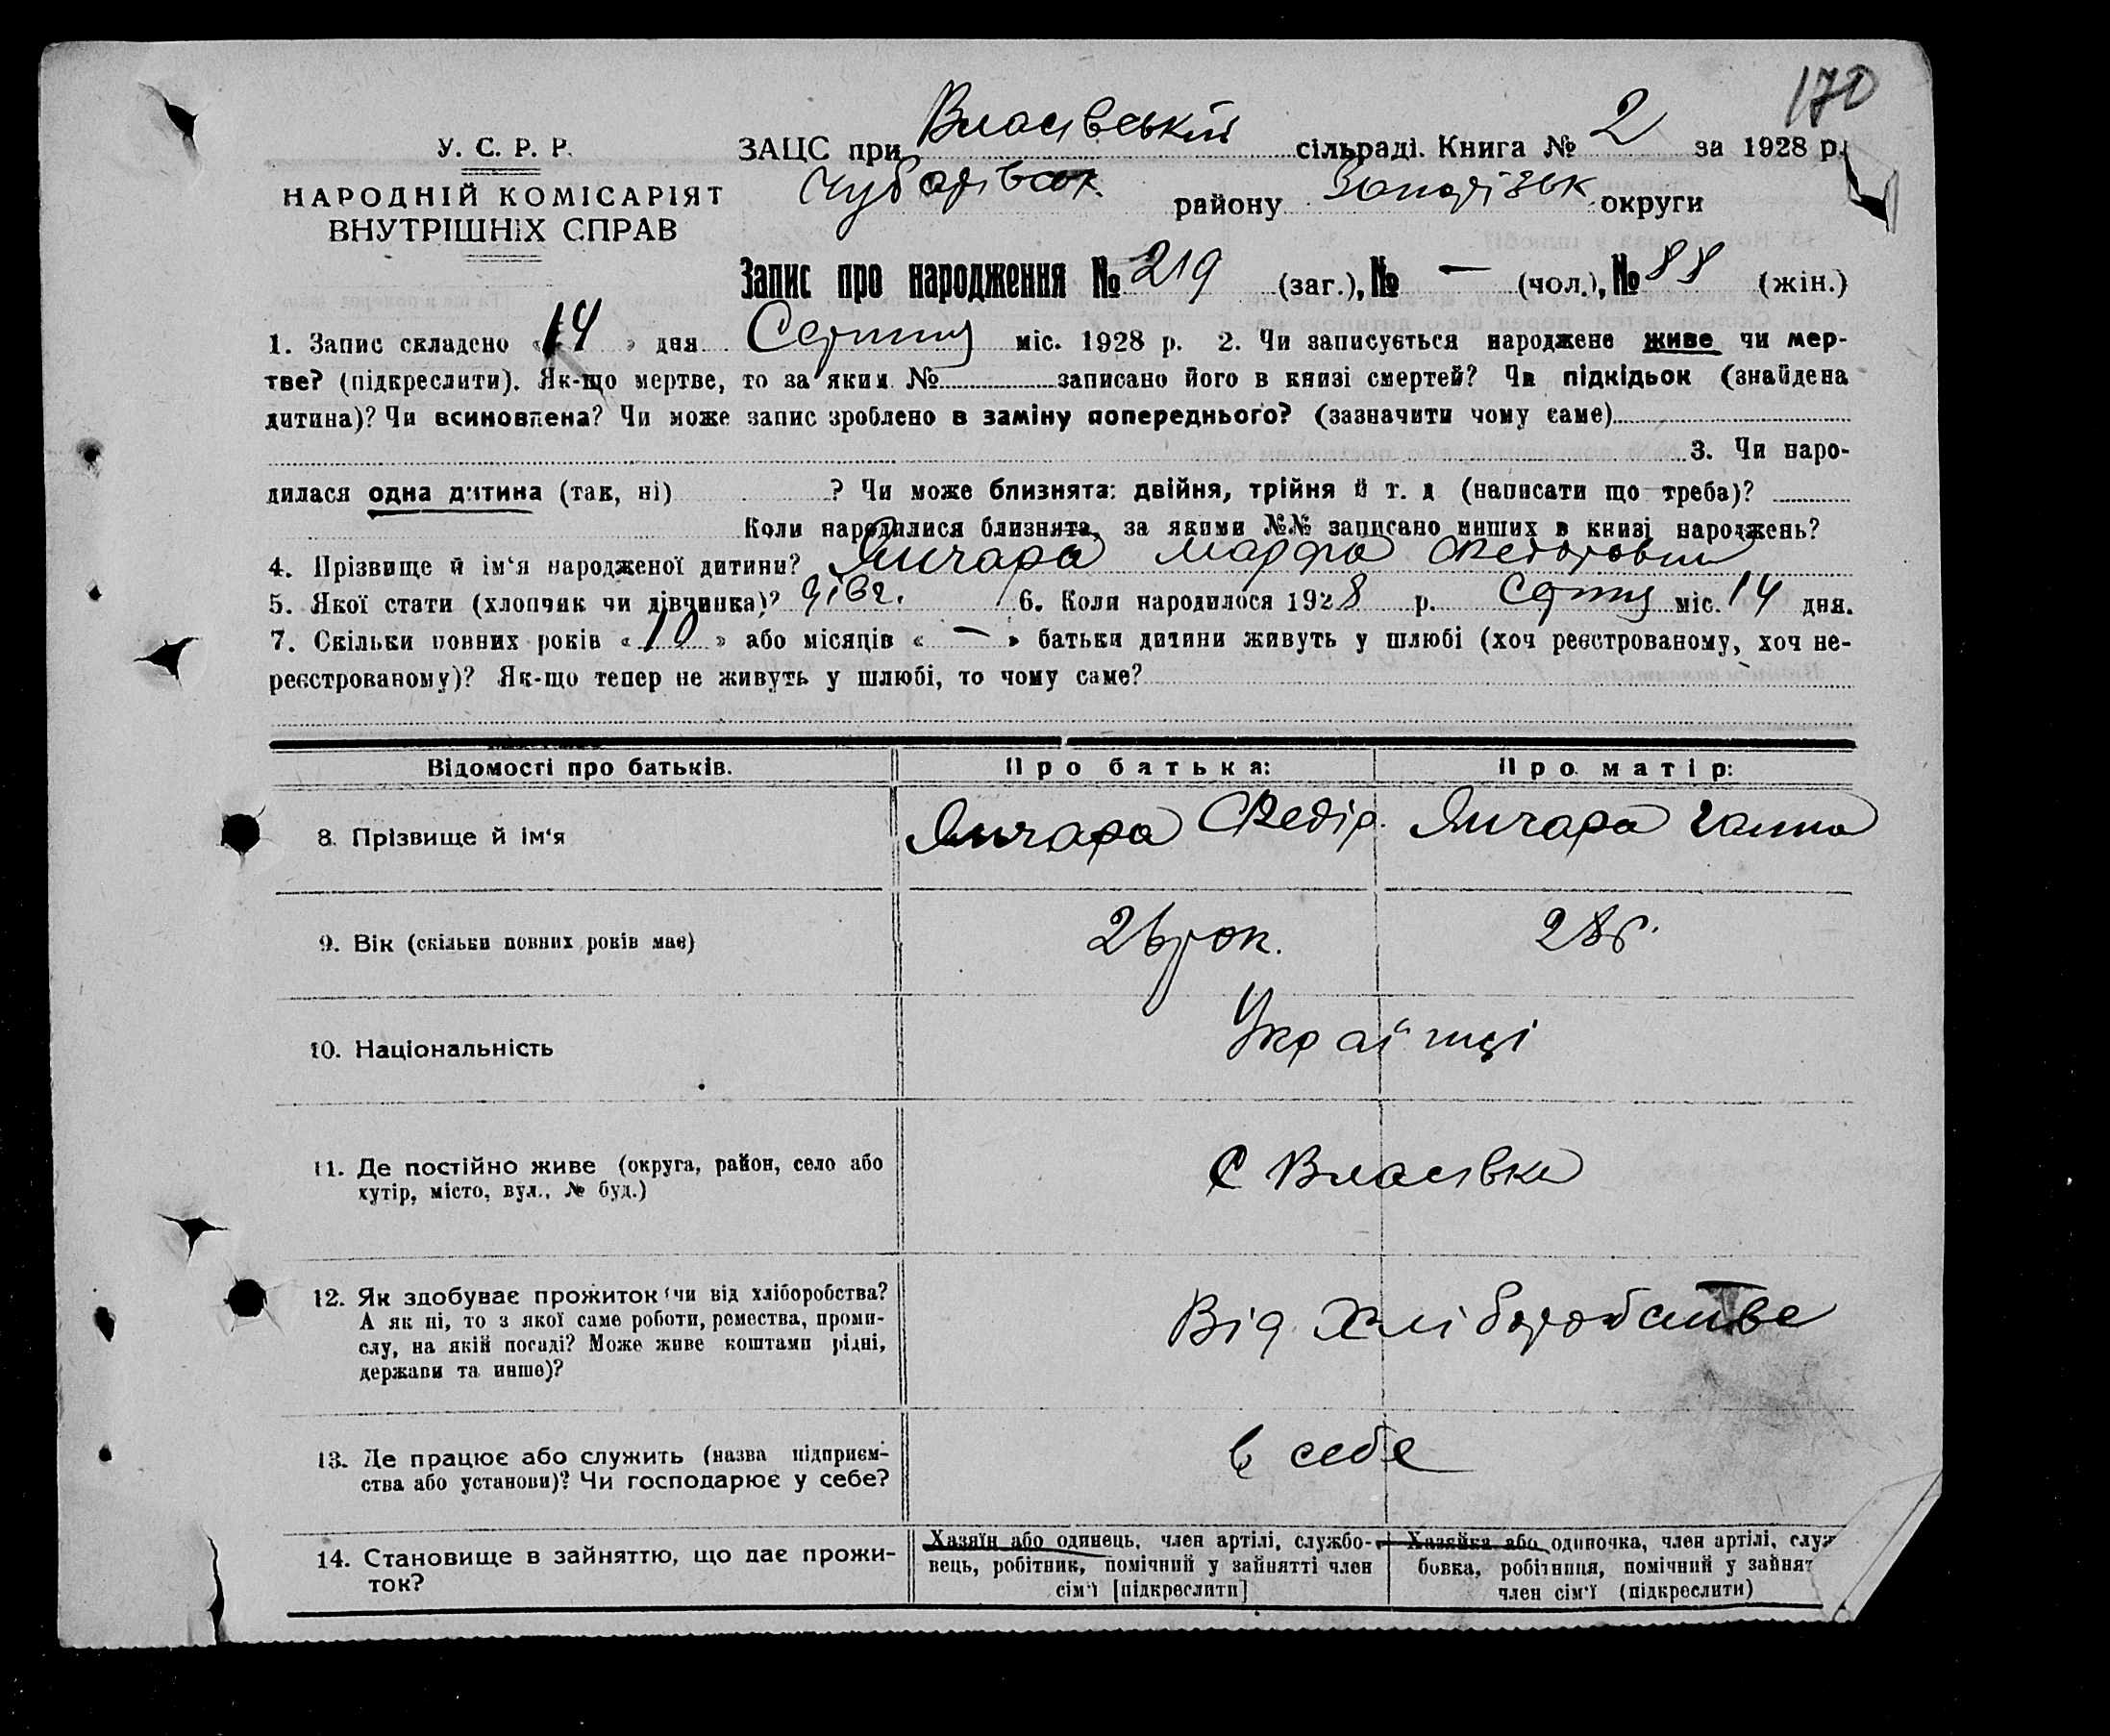 170
У. С. Р. Р.
НАРОДНІЙ КОМІСАРІЯТ
ВНУТРІШНІХ СПРАВ
ЗАЦС при Власівській сільраді. Книга № 2 за 1928 р.
Чубарівськ. району Запоріжськ округи
Запис про народження № 219 (заг.), № — (чол.), № 88 (жін.)
1. Запис складено « 14 » дня Серпня міс. 1928 р. 2. Чи записується народжене живе чи мер-
тве? (підкреслити). Як-що мертве, то за яким № записано його в книзі смертей? Чи підкідьок (знайдена
дитина)? Чи всиновлена? Чи може запис зроблено в заміну попереднього? (зазначити чому саме)
3. Чи наро-
дилася одна дитина (так, ні) ? Чи може близнята: двійня, трійня й т. д (написати що треба)?
Коли народилися близнята, за якими №№ записано инших в книзі народжень?
4. Прізвище й ім‘я народженої дитини? Янчара Марфа Федоровна
5. Якої стати (хлопчик чи дівчинка)? дівч. 6. Коли народилося 1928 р. Серпня міс. 14 дня.
7. Скільки повних років « 10 » або місяців « — » батьки дитини живуть у шлюбі (хоч реєстрованому, хоч не-
реєстрованому)? Як-що тепер не живуть у шлюбі, то чому саме?
Відомості про батьків. Про батька: Про матір:
8. Прізвище й ім‘я Янчара Федір. Янчара Ганна
9. Вік (скільки повних років має) 26 рок. 28 р.
10. Національність Українці
11. Де постійно живе (округа, район, село або
хутір, місто, вул., № буд.) С Власівка
12. Як здобуває прожиток (чи від хліборобства?
А як ні, то з якої саме роботи, ремества, проми-
слу, на якій посаді? Може живе коштами рідні,
держави та инше)? Від Хліборобства
13. Де працює або служить (назва підприєм-
ства або установи)? Чи господарює у себе? в себе
14. Становище в зайняттю, що дає прожи-
ток?
Хазяїн або одинець, член артілі, службо-
вець, робітник, помічний у зайнятті член
сім‘ї [підкреслити]
Хазяйка або одиночка, член артілі, служ
бовка, робітниця, помічний у зайнят
член сім‘ї (підкреслити)